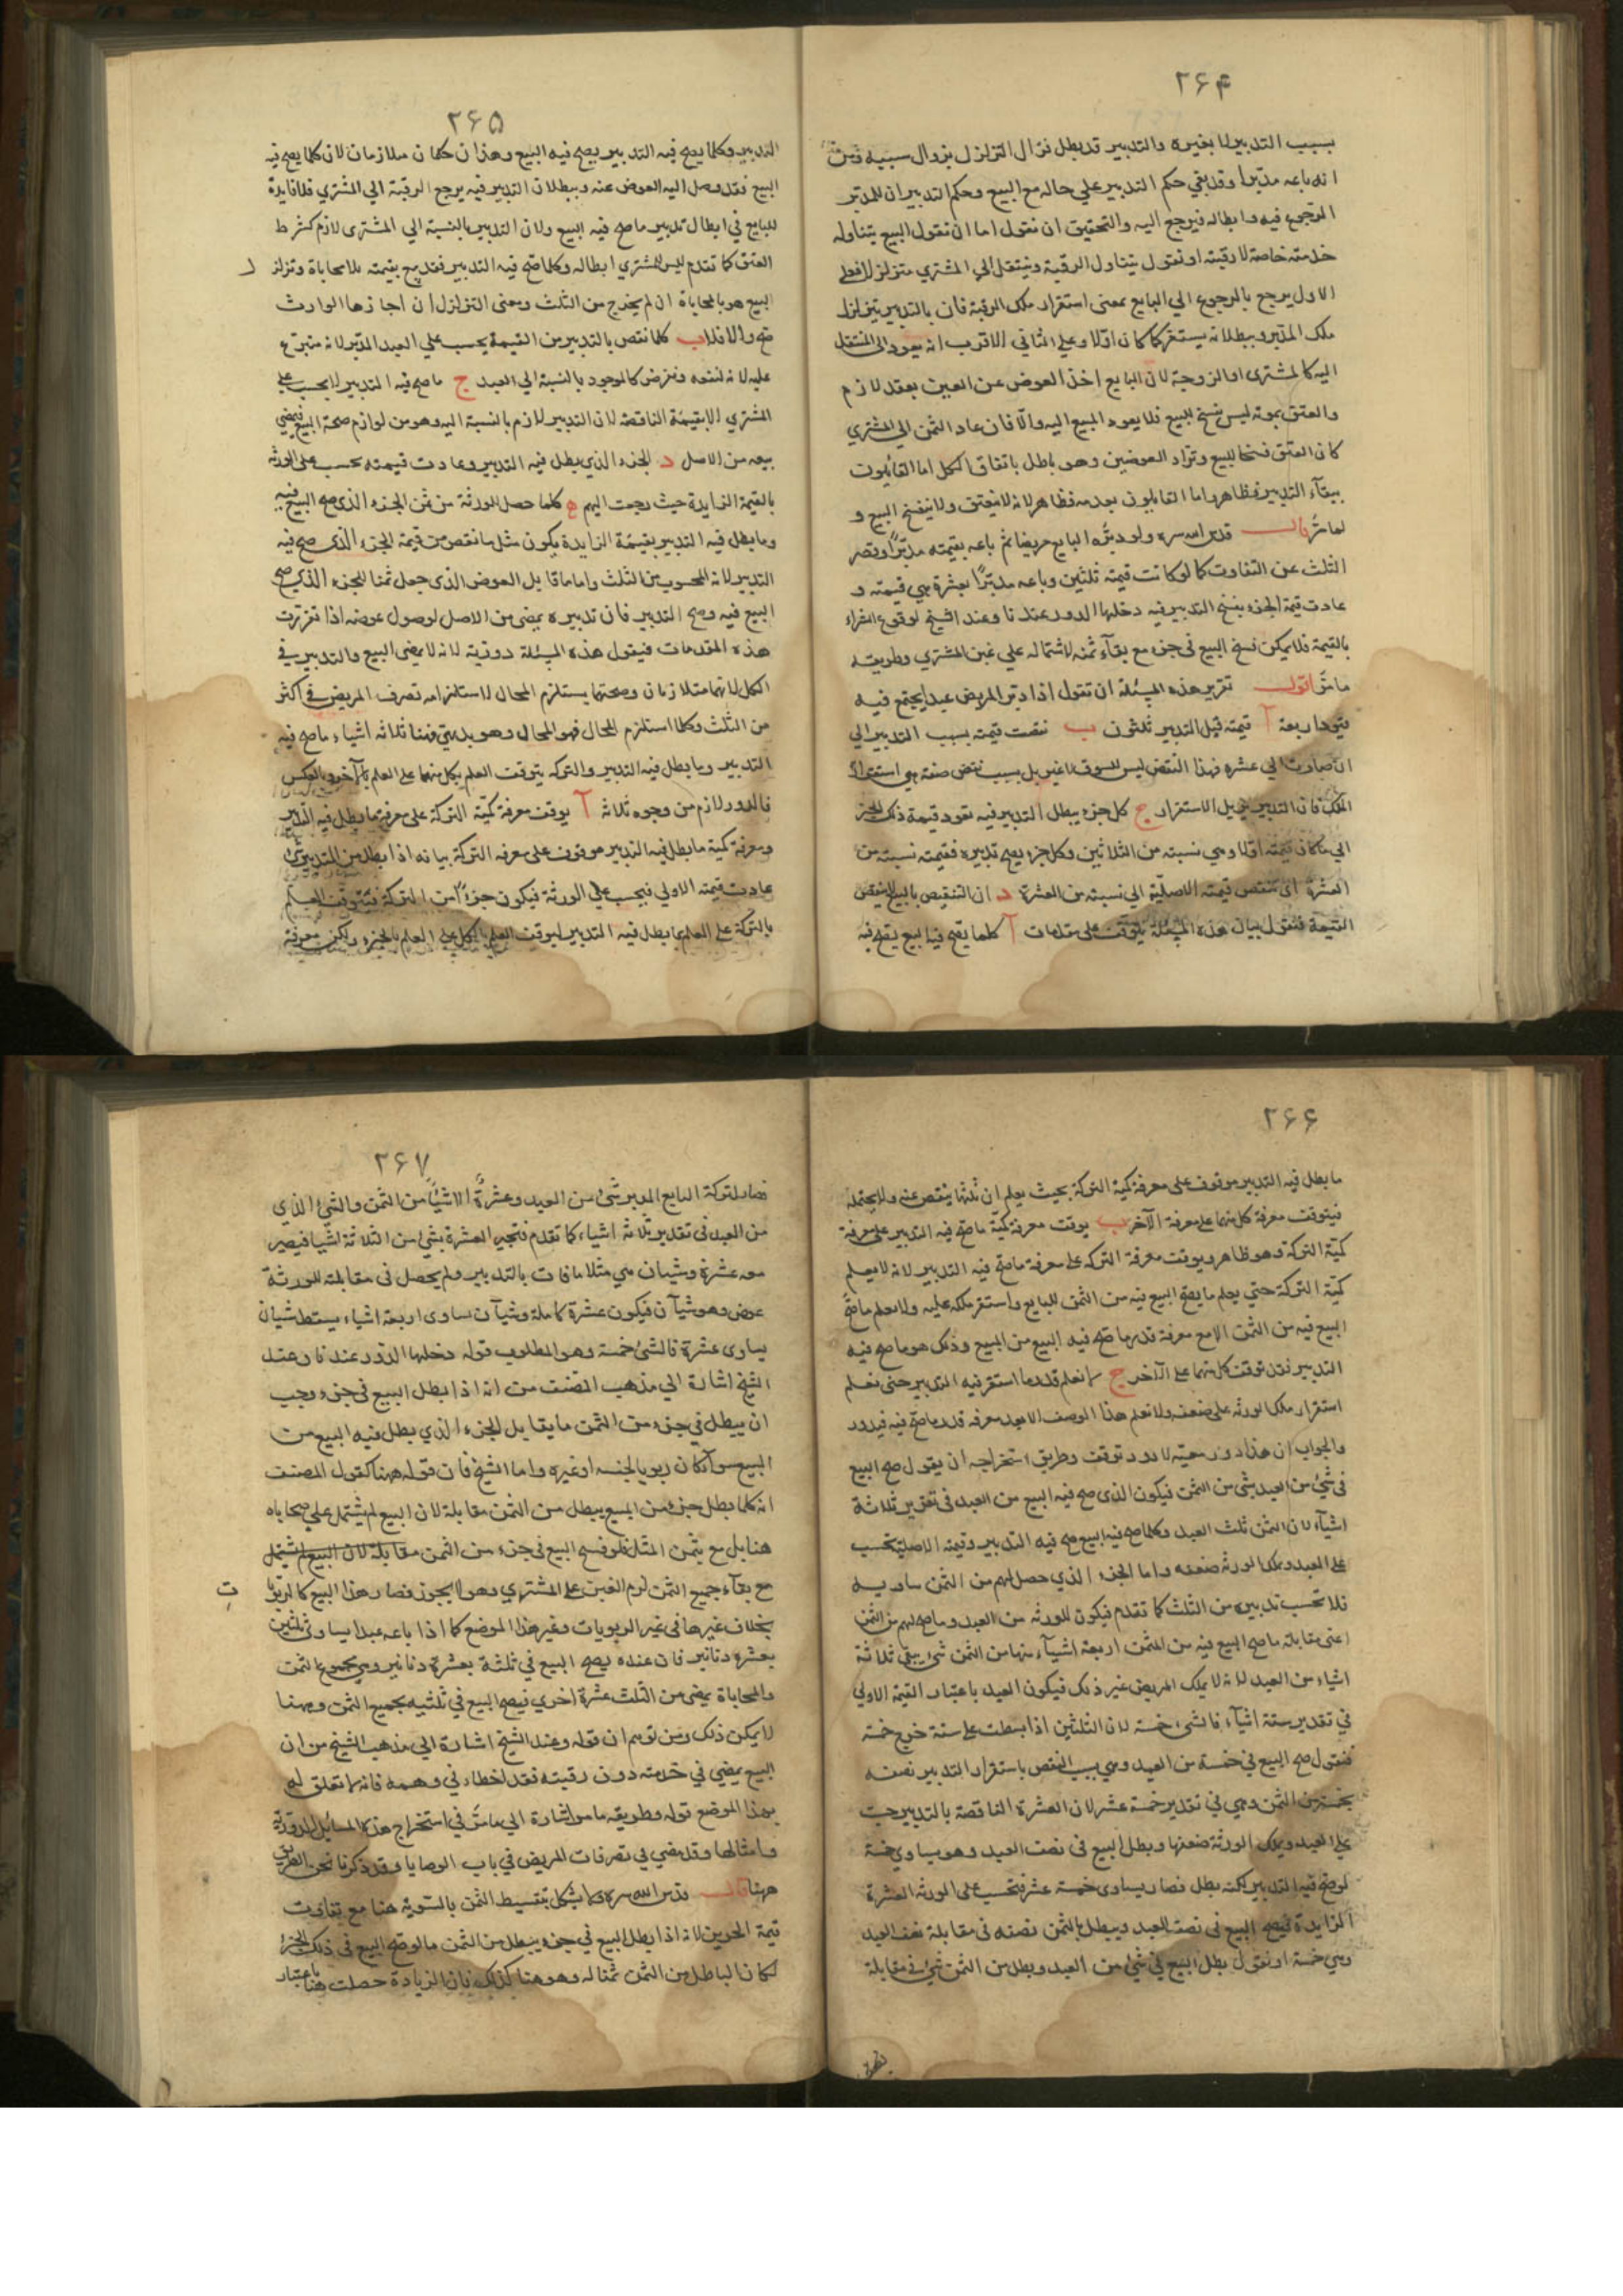 ۲۶۴
بسبب التدبير لا بغيره والتدبير قد بطل فزال التزلزل بزوال سببيه ومن
انه باعه مدبرا وقد بقي حكم التدبير علي حاله مع البيع وحكم التدبير ان للمدبر
الرجوع فيه وابطاله فيرجع اليه والتحقيق ان نقول اما ان نقول البيع يتناول
خدمته خاصة لا رقبته او نقول يتناول الرقبة وينتقل الي المشتري متزلزلا فعلي
الاول يرجع بالرجوع الي البايع بمعني استقرار ملك الرقبة فان بالتدبير يتزلزل
ملك المدبر وببطلانه يستقر كما كان اولا وعلي الثاني الاقرب انه يعود الي المنتقل
اليه كالمشتري او الزوجة لان البايع اخذ العوض عن العين بعقد لازم
والعتق بموته ليس بفسخ للبيع فلا يعود المبيع اليه والا فان عاد الثمن الي المشتري
كان العتق فسخا للبيع وتراد العوضين وهو باطل باتفاق الكل اما القائلون
ببقآء التدبير فظاهر واما القايلون بعدمه فظاهر لانه لا ينعتق ولا ينفسخ البيع و
لما مر قال قدس الله سره ولو دبره البايع مريضا ثم باعه بقيمته مدبرا وقصر
الثلث عن التفاوت كما لو كانت قيمته ثلثين وباعه مدبرا بعشرة هي قيمته و
عادت قيمة الجزء بفسخ التدبير فيه دخلها الدور عندنا وعند الشيخ لوقوع الشراء
بالقيمة فلا يمكن فسخ البيع في جزء مع بقآء ثمنه لاشتماله علي غبن المشتري وطريقه
ما مر اقول تقرير هذه المسئلة ان نقول اذا دبر المريض عبدا يجتمع فيه
قيود اربعة آ قيمته قبل التدبير ثلثون ب نقصت قيمته بسبب التدبير الي
ان صارت الي عشرة فهذا النقص ليس للسوق لا غير بل بسبب نقص صفة هي استقرار
الملك فان التدبير يزيل الاستقرار ج كل جزء يبطل التدبير فيه تعود قيمة ذلك الجزء
الي ما كان قيمته اولا وهي نسبته من الثلاثين وكل جزء يصح تدبيره فقيمته نسبته من
العشرة اي تنقص قيمته الاصلية الي نسبته من العشرة د ان التنقيص بالبيع لا ينقص
القيمة فنقول بيان هذه المسئلة يتوقف علي مقدمات آ كلما يصح فيه البيع يصح فيه
۲۶۵
التدبير وكلما يصح فيه التدبير يصح فيه البيع وهذان حكمان متلازمان لان كلما يصح فيه
البيع فقد وصل اليه العوض عنه وببطلان التدبير فيه يرجع الرقبة الي المشتري فلا فايدة
للبايع في ابطال تدبير ما صح فيه البيع ولان التدبير بالنسبة الي المشتري لازم كشرط
العتق كما تقدم ليس للمشتري ابطاله وكلما صح فيه التدبير فقد بيع بقيمته بلا محاباة وتزلزل
البيع هو بالمحاباة ان لم يخرج من الثلث ومعني التزلزل ان اجازها الوارث
صح والا فلا ب كلما نقص بالتدبير من القيمة يحسب علي العبد المدبر لانه متبرع
عليه لانه لنفعه ونفرض كالموجود بالنسبة الي العبد ج ما صح فيه التدبير لا يحسب علي
المشتري الا بقيمته الناقصة لان التدبير لازم بالنسبة اليه وهو من لوازم صحة البيع فيمضي
بيعه من الاصل د الجزء الذي يطل فيه التدبير وعادت قيمته يحسب علي الورثة
بالقيمة الزايدة حيث رجعت اليهم ه كلما حصل للورثة من ثمن الجزء الذي صح البيع فيه
وما بطل فيه التدبير بقيمته الزايدة يكون مثلي ما نقص من قيمة الجزء الذي صح فيه
التدبير لانه المحسوب من الثلث واما ما قابل العوض الذي جعل ثمنا للجزء الذي صح
البيع فيه وصح التدبير فان تدبيره يمضي من الاصل لوصول عوضه اذا تقررت
هذه المقدمات فنقول هذه المسئلة دورية لانه لا يمضي البيع والتدبير في
الكل لانهما متلازمان وصحتهما يستلزم المحال لاستلزامه تصرف المريض في اكثر
من الثلث وكلما استلزم المحال فهو المحال وهو بديهي فهنا ثلاثة اشياء ما صح فيه
التدبير وما بطل فيه التدبير والتركه يتوقف العلم بكل منهما علي العلم بالآخر وبالعكس
فالدور لازم من وجوه ثلاثة آ يوقف معرفة كمية التركة علي معرفة ما بطل فيه التدبير
ومعرفة كمية ما بطل فيه التدبير موقوف علي معرفه التركة بيانه اذا بطل من التدبير شئ
عادت قيمته الاولي فيحسب علي الورثة فيكون جزءا من التركة فيتوقف العلم
بالتركة علي العلم بما بطل فيه التدبير لتوقف العلم بالكل علي العلم بالجزء ولكن معرفة
۲۶۶
ما بطل فيه التدبير موقوف علي معرفة كمية التركة بحيث يعلم ان ثلثها ينقص عنه ولا يحتمله
فيتوقف معرفة كل منهما علي معرفة الآخر ب يوقف معرفة كمية ما صح فيه التدبير علي معرفة
كمية التركة وهو ظاهر ويوقف معرفة التركه علي معرفة ما صح فيه التدبير لانه لا يعلم
كمية التركة حتي يعلم ما يصح البيع فيه من الثمن للبايع واستقر ملكه عليه ولا يعلم ما صح
البيع فيه من الثمن الا مع معرفة قدر ما صح فيه البيع من المبيع وذلك هو ما صح فيه
التدبير فقد توقف كل منهما علي الآخر ج لا نعلم قدر ما استقر فيه التدبير حتي نعلم
استقرار ملك الورثه علي ضعفه ولا نعلم هذا الوصف الا بعد معرفه قدر ما صح فيه فيدور
والجواب ان هذا دور معية لا دور توقف وطريق استخراجه ان يقول صح البيع
في شئ من العبد بشئ من الثمن فيكون الذي صح فيه البيع من العبد في تقدير ثلاثة
اشيآء لان الثمن ثلث العبد وكلما صح فيه البيع صح فيه التدبير وقيمته الاصلية تحسب
علي العبد ويملك الورثه ضعفه واما الجزء الذي حصل لهم من الثمن مساويه
فلا تحسب تدبيره من الثلث كما تقدم فيكون للورثه من العبد وما صح لهم من الثمن
اعني مقابلة ما صح البيع فيه من الثمن اربعة اشيآء منها من الثمن شئ يبقي ثلاثة
اشياء من العبد لانه لا يملك المريض غير ذلك فيكون العبد باعتبار القيمة الاولي
في تقدير ستة اشيآء فالشئ خمسة لان الثلثين اذا بسطت علي ستة خرج خمسة
فنقول صح البيع في خمسة من العبد وهي بسبب النقص باستقرار التدبير نصفه
بخمسة من الثمن وهي في تقدير خمسة عشر لان العشرة الناقصة بالتدبير حسبت
علي العبد ويملك الورثة ضعفها وبطل البيع في نصف العبد وهو يساوي خمسة
لو صح فيه التدبير لكنه بطل فصار يساوي خمسة عشر فتحسب علي الورثه العشرة
الزايدة فيصح البيع في نصف العبد ويبطل بالثمن نصفه في مقابلة نصف العبد
وهي خمسة او نقول بطل البيع في شئ من العبد وبطل من الثمن شئ في مقابلة
۲۶۷
فصار لتركة البايع المدبر شئ من العبد وعشرة الا شيئا من الثمن والشئ الذي
من العبد في تقدير ثلاثة اشياء كما تقدم فتجبر العشرة بشئ من الثلاثة اشيا فيصير
معه عشرة وشيئان هي مثلا ما فات بالتدبير ولم يحصل في مقابلته للورثة
عوض وهو شيآن فيكون عشرة كاملة وشيآن يساوي اربعة اشياء يسقط شيئان
يساوي عشرة فالشئ خمسة وهو المطلوب قوله دخلها الدور عندنا وعند
الشيخ اشارة الي مذهب المصنف من انه اذا بطل البيع في جزء وجب
ان يبطل في جزء من الثمن ما يقابل الجزء الذي بطل فيه البيع من
المبيع سوآء كان ربويا لجنسه او غيره واما الشيخ فان قوله ههنا كقول المصنف
انه كلما بطل جزء من المبيع يبطل من الثمن مقابلة لان البيع لم يشتمل علي محاباه
هنا بل مع بثمن المثل فلو فسخ البيع في جزء من الثمن مقابلة لان البيع لم يشتمل
مع بقآء جميع الثمن لزم الغبن علي المشتري وهو لا يجوز فصار هذا البيع كالربويا
ت
بخلاف غيرها في غير الربويات وغير هذا الموضع كما اذا باعه عبدا يساوي ثلثين
بعشرة دنانير فان عنده يصح البيع في ثلثه بعشرة دنانير وهي مجموع الثمن
والمحاباة يمضي من الثلث عشرة اخري فيصح البيع في ثلثيه بجميع الثمن وههنا
لا يمكن ذلك ومن توهم ان قوله وعند الشيخ اشارة الي مذهب الشيخ من ان
البيع يمضي في خدمته دون رقبته فقد اخطاء في وهمه فانه لا تعلق له
بهذا الموضع قوله وطريقه ما مر اشارة الي ما مر في استخراج هذه المسايل الدورية
وامثالها وقد مضي في تصرفات المريض في باب الوصايا وقد ذكرنا نحن الطريق
ههنا قال قدس الله سره وكما يشكل بتقسيط الثمن بالسوية هنا مع تفاوت
قيمة الجزين لانه اذا بطل البيع في جزء يبطل من الثمن ما لو صح البيع في ذلك الجزء
لكان الباطل من الثمن ثمنا له وهو هنا كذلك فان الزيادة حصلت هنا باعتبار